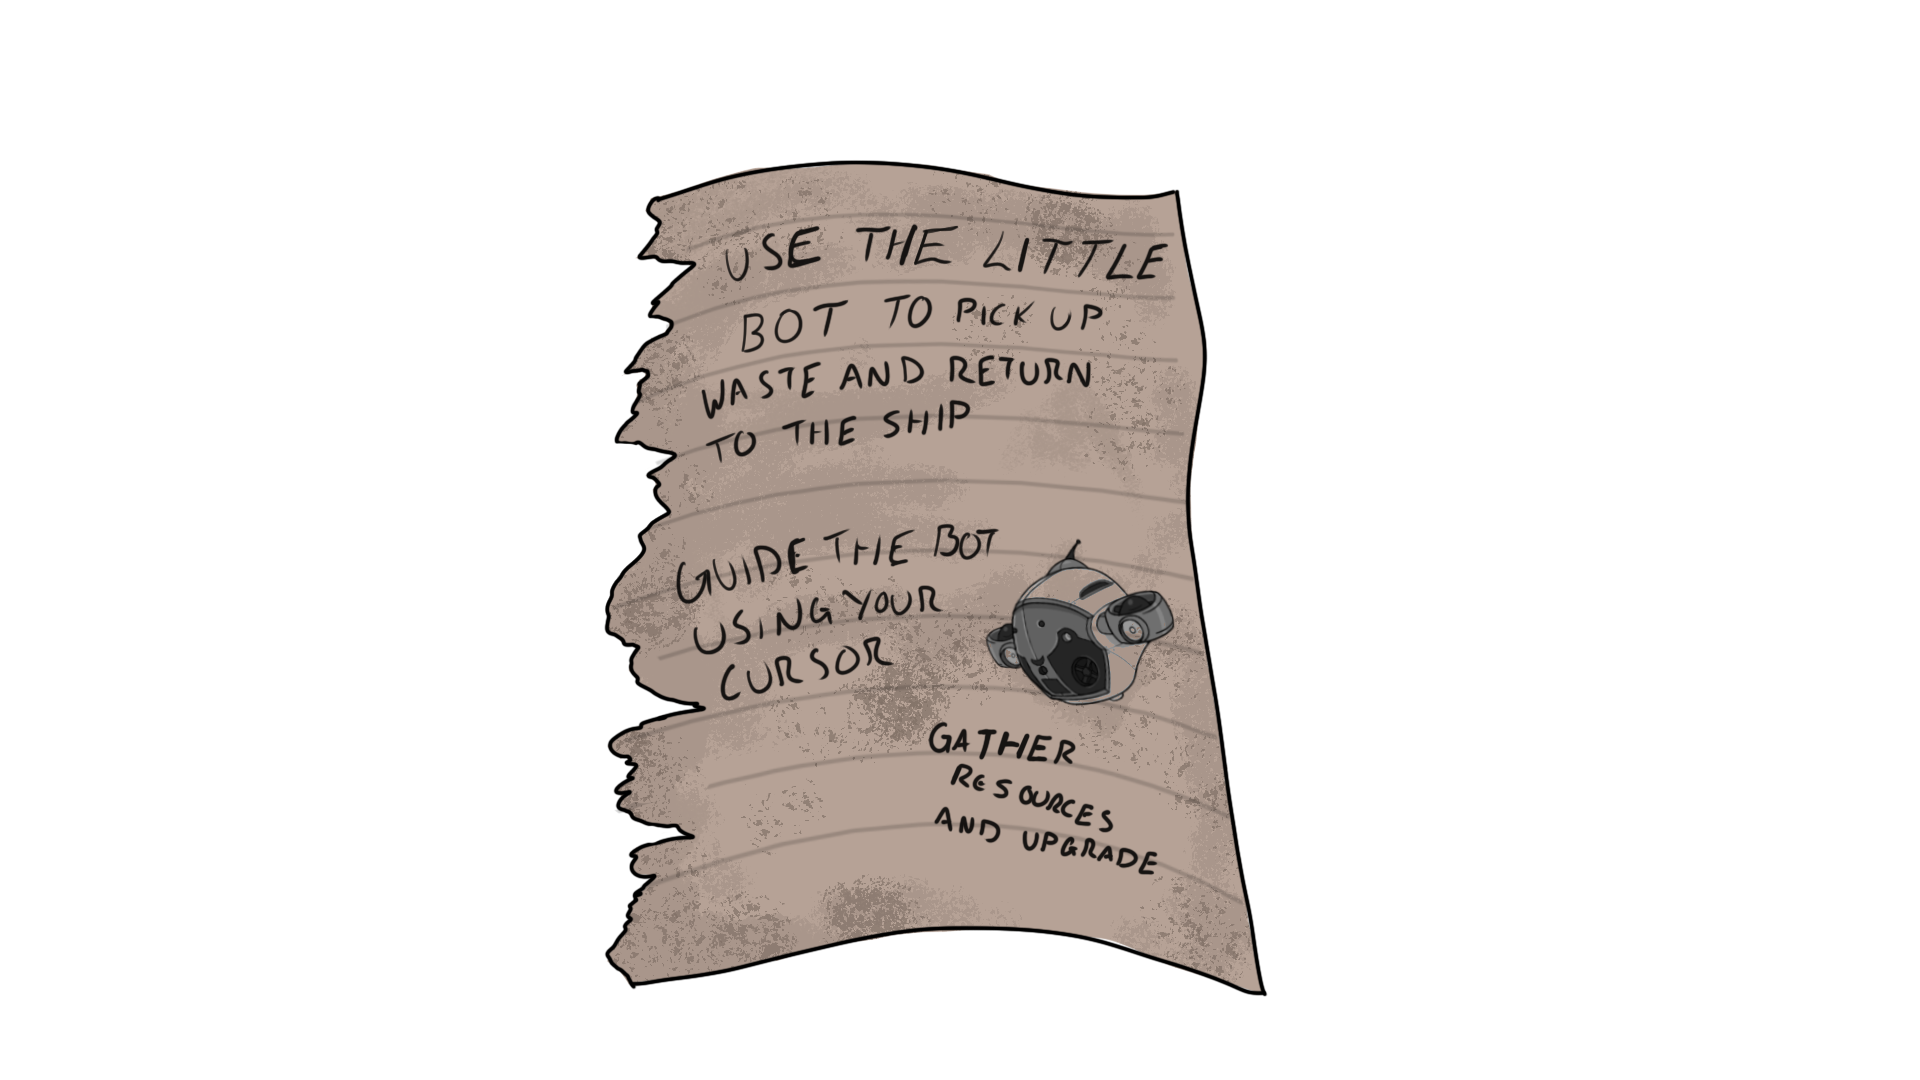 USE THE LITTLE
BOT TO PICK UP
WASTE AND RETURN
TO THE SHIP
GUIDE THE BOT
USING YOUR
CURSOR
GATHER
RESOURCES
AND UPGRADE